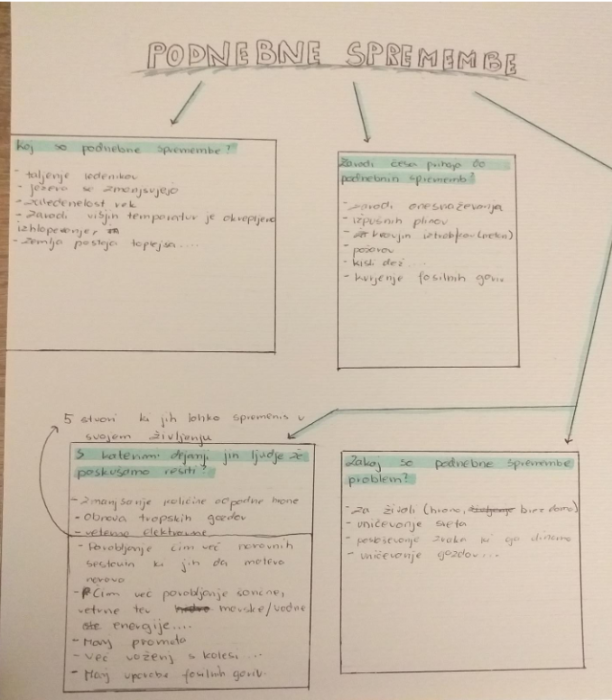 PODNEBNE SPREMEMBE
Kaj so podnebne spremembe?
- taljenje ledenikov
- jezera se zmanjšujejo
- zaledenelost rek
- zaradi višjih temperatur je okrepljeno
izhlapevanje
- zemlja postaja toplejša....
Zaradi česa prihaja do
podnebnih sprememb?
- zaradi onesnaževanja
- izpušnih plinov
- kravjih iztrebkov (metan)
- požarov
- kisli dež ....
- kurjenje fosilnih goriv
5 stvari ki jih lahko spremeniš v
svojem življenju
S katerimi dejanji jih ljudje že
poskušamo rešiti?
- Zmanjšanje količine odpadne hrane
- Obnova tropskih gozdov
- vetrne elektrarne
- Porabljanje čim več naravnih
sestavin ki jih da matera
narava
- Čim več porabljanje sončne,
vetrne ter morske/vodne
energije....
- Manj prometa
- Več voženj s kolesi ....
- Manj uporabe fosilnih goriv.
Zakaj so podnebne spremembe
problem?
- Za živali (hrana, brez doma)
- uničevanje sveta
- zraka ki ga dihamo
- uničevanje gozdov...